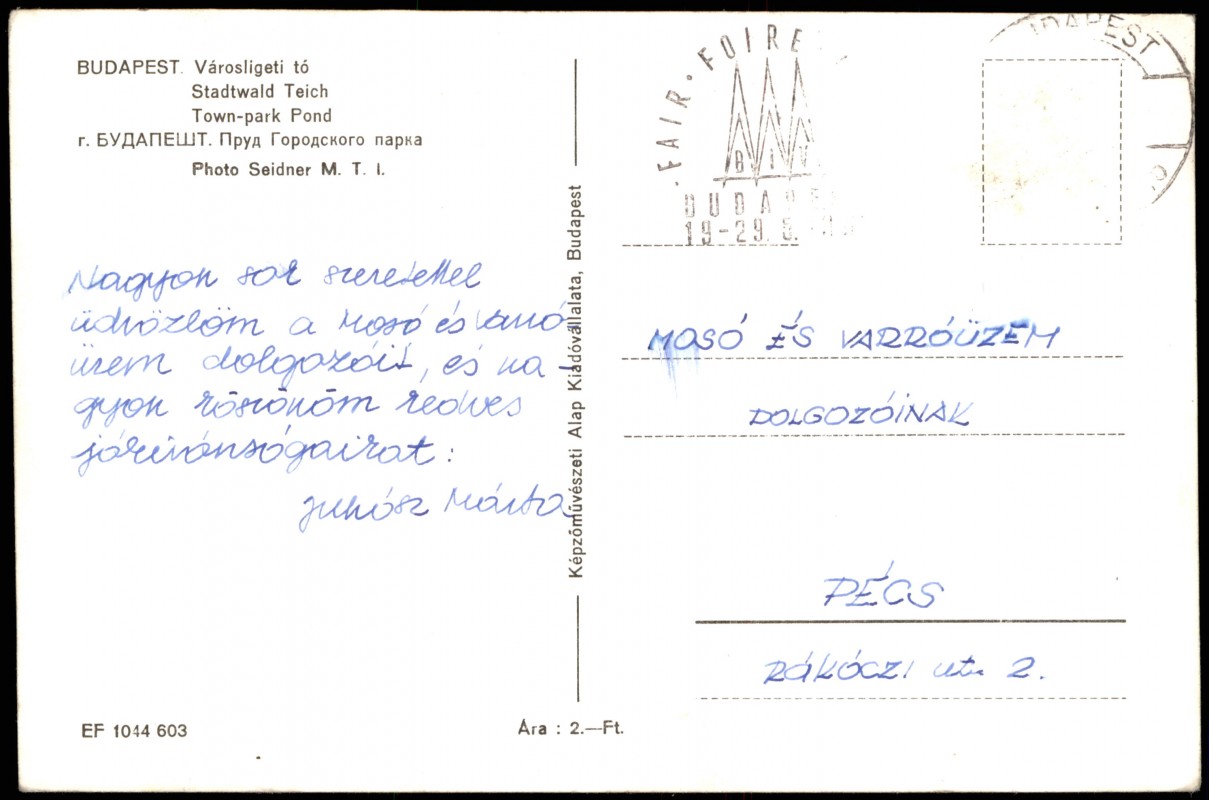 BUDAPEST. Városligeti tó
Stadtwald Teich
Town-park Pond
г. БУДАПЕШТ. Пруд Городского парка
Photo Seidner M. T. I.
Nagyon sok szeretettel
üdvözlöm a Mosó és Varró
üzem dolgozóit, és na-
gyon köszönöm kedves
jókívánságaikat:
Juhász Márta
EF 1044 603
Képzőművészeti Alap Kiadóvállalata, Budapest
Ára : 2.—Ft.
FAIR · FOIRE
BUDAPEST
MOSÓ ÉS VARRÓÜZEM
DOLGOZÓINAK
PÉCS
RÁKÓCZI ut. 2.